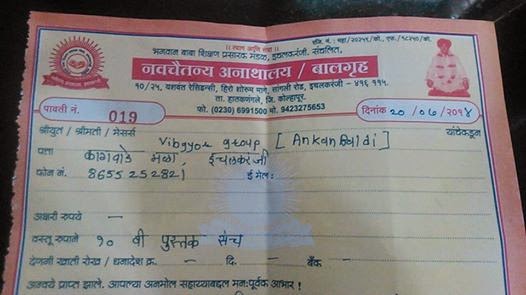 ।। त्याग आणि सेवा ।।
भगवान बाबा शिक्षण प्रसारक मंडळ, इचलकरंजी. संचलित,
नवचैतन्य अनाथालय / बालगृह
१०/२५, यशवंत रेसिडन्सी, हिरो शोरुम मागे, सांगली रोड, इचलकरंजी - ४१६ ११५.
ता. हातकणंगले, जि. कोल्हापूर.
फोन. (0230) 6991500 मो. 9423275653
पावती नं. 019 दिनांक २०/०७/२०१४
श्रीयुत / श्रीमती / मेसर्स Vibgyor group [Ankan Baldi] यांचेकडून
पत्ता कागवाडे मळा, इचलकरंजी
फोन नं. 8655252821 ई मेल:
अक्षरी रुपये —
वस्तू रुपाने १० वी पुस्तक संच
देणगी खाती रोख / धनादेश क्र. — दि. — बँक —
अन्वये प्राप्त झाले. आपल्या अनमोल सहाय्याबद्दल मन:पूर्वक आभार !